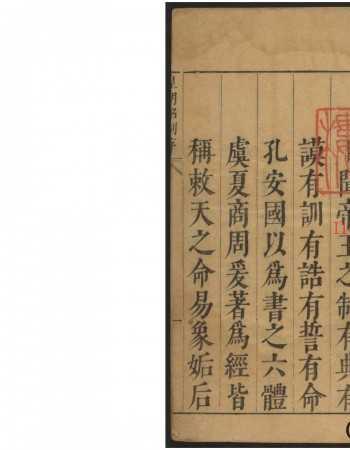 帝王之制有典有
謨有訓有誥有誓有命
孔安國以為書之六體
虞夏商周爰著為經皆
稱敕天之命易象姤后